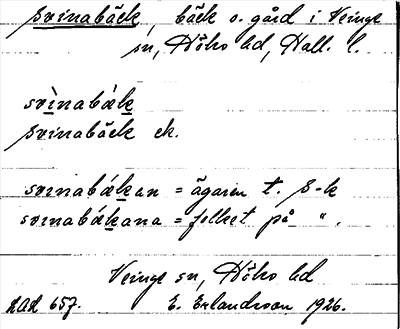 Svinabäck, bäck o. gård i Veinge
sn, Höks hd, Hall. l.
svìnabák
Svinabäck ek.
svinabákan = ägaren t. S-k
svinabákana = folket på ".
Veinge sn, Höks hd
LAL 657. E. Erlandsson 1926.